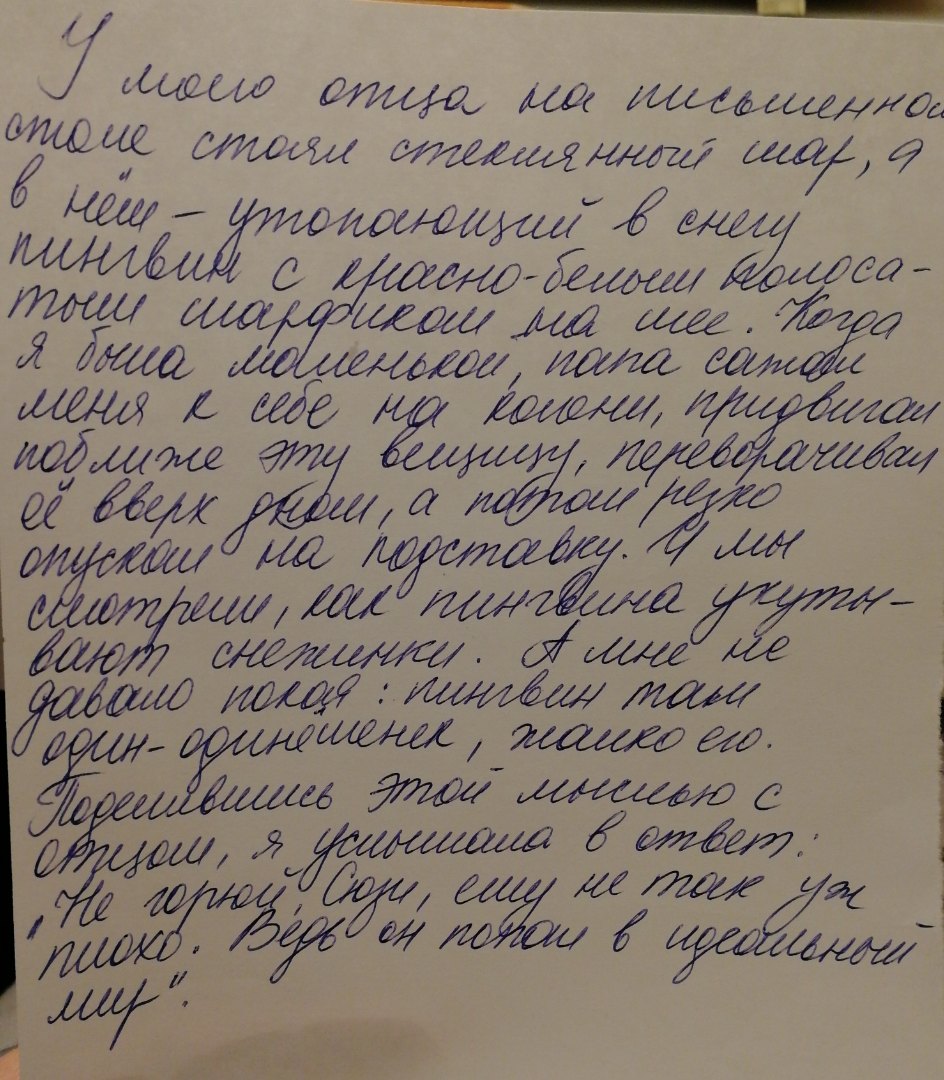 У моего отца на письменном
столе стоял стеклянный шар, а
в нём – утопающий в снегу
пингвин с красно-белым полоса-
тым шарфиком на шее. Когда
я была маленькой, папа сажал
меня к себе на колени, придвигал
поближе эту вещицу, переворачивал
её вверх дном, а потом резко
опускал на подставку. И мы
смотрели, как пингвина укуты-
вают снежинки. А мне не
давало покоя: пингвин там
один-одинёшенек, жалко его.
Поделившись этой мыслью с
отцом, я услышала в ответ:
„Не горюй, Сюзи, ему не так уж
плохо. Ведь он попал в идеальный
мир".